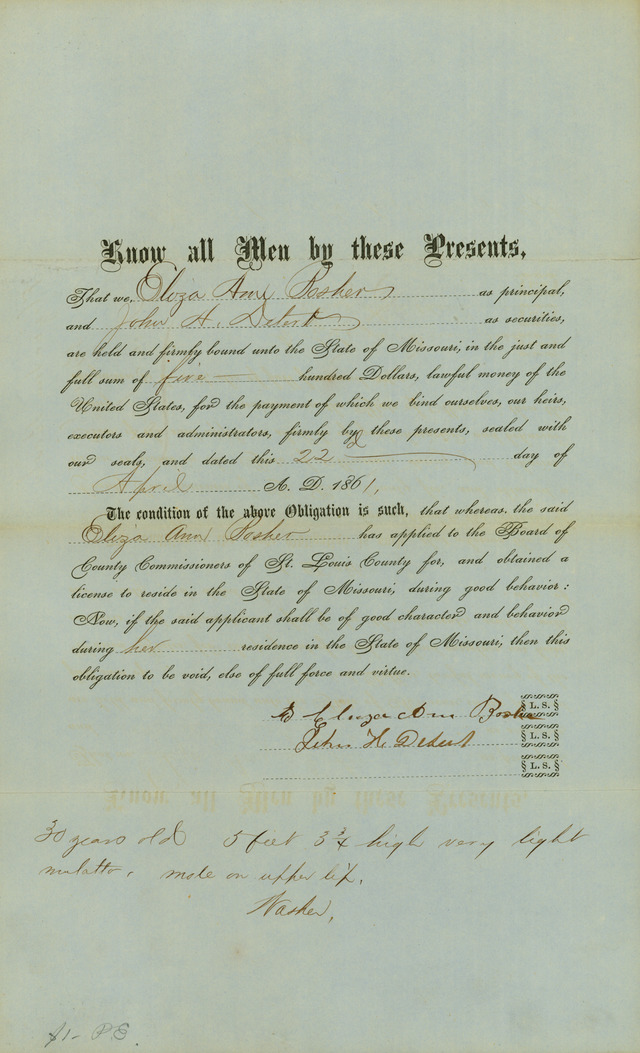 Know all Men by these Presents,
That we, Eliza Ann Bosher as principal,
and John H. as securities,
are held and firmly bound unto the State of Missouri, in the just and
full sum of five hundred Dollars, lawful money of the
United States, for the payment of which we bind ourselves, our heirs,
executors and administrators, firmly by these presents, sealed with
our seals, and dated this 22d day of
April A. D. 1861,
The condition of the above Obligation is such, that whereas, the said
Eliza Ann Bosher has applied to the Board of
County Commissioners of St. Louis County for, and obtained a
license to reside in the State of Missouri, during good behavior:
Now, if the said applicant shall be of good character and behavior
during her residence in the State of Missouri, then this
obligation to be void, else of full force and virtue.
Eliza Ann Bosher L. S.
John H L. S.
L. S.
30 years old 5 feet 3 3/4 high very light
mulatto, mole on upper lip.
Washer,